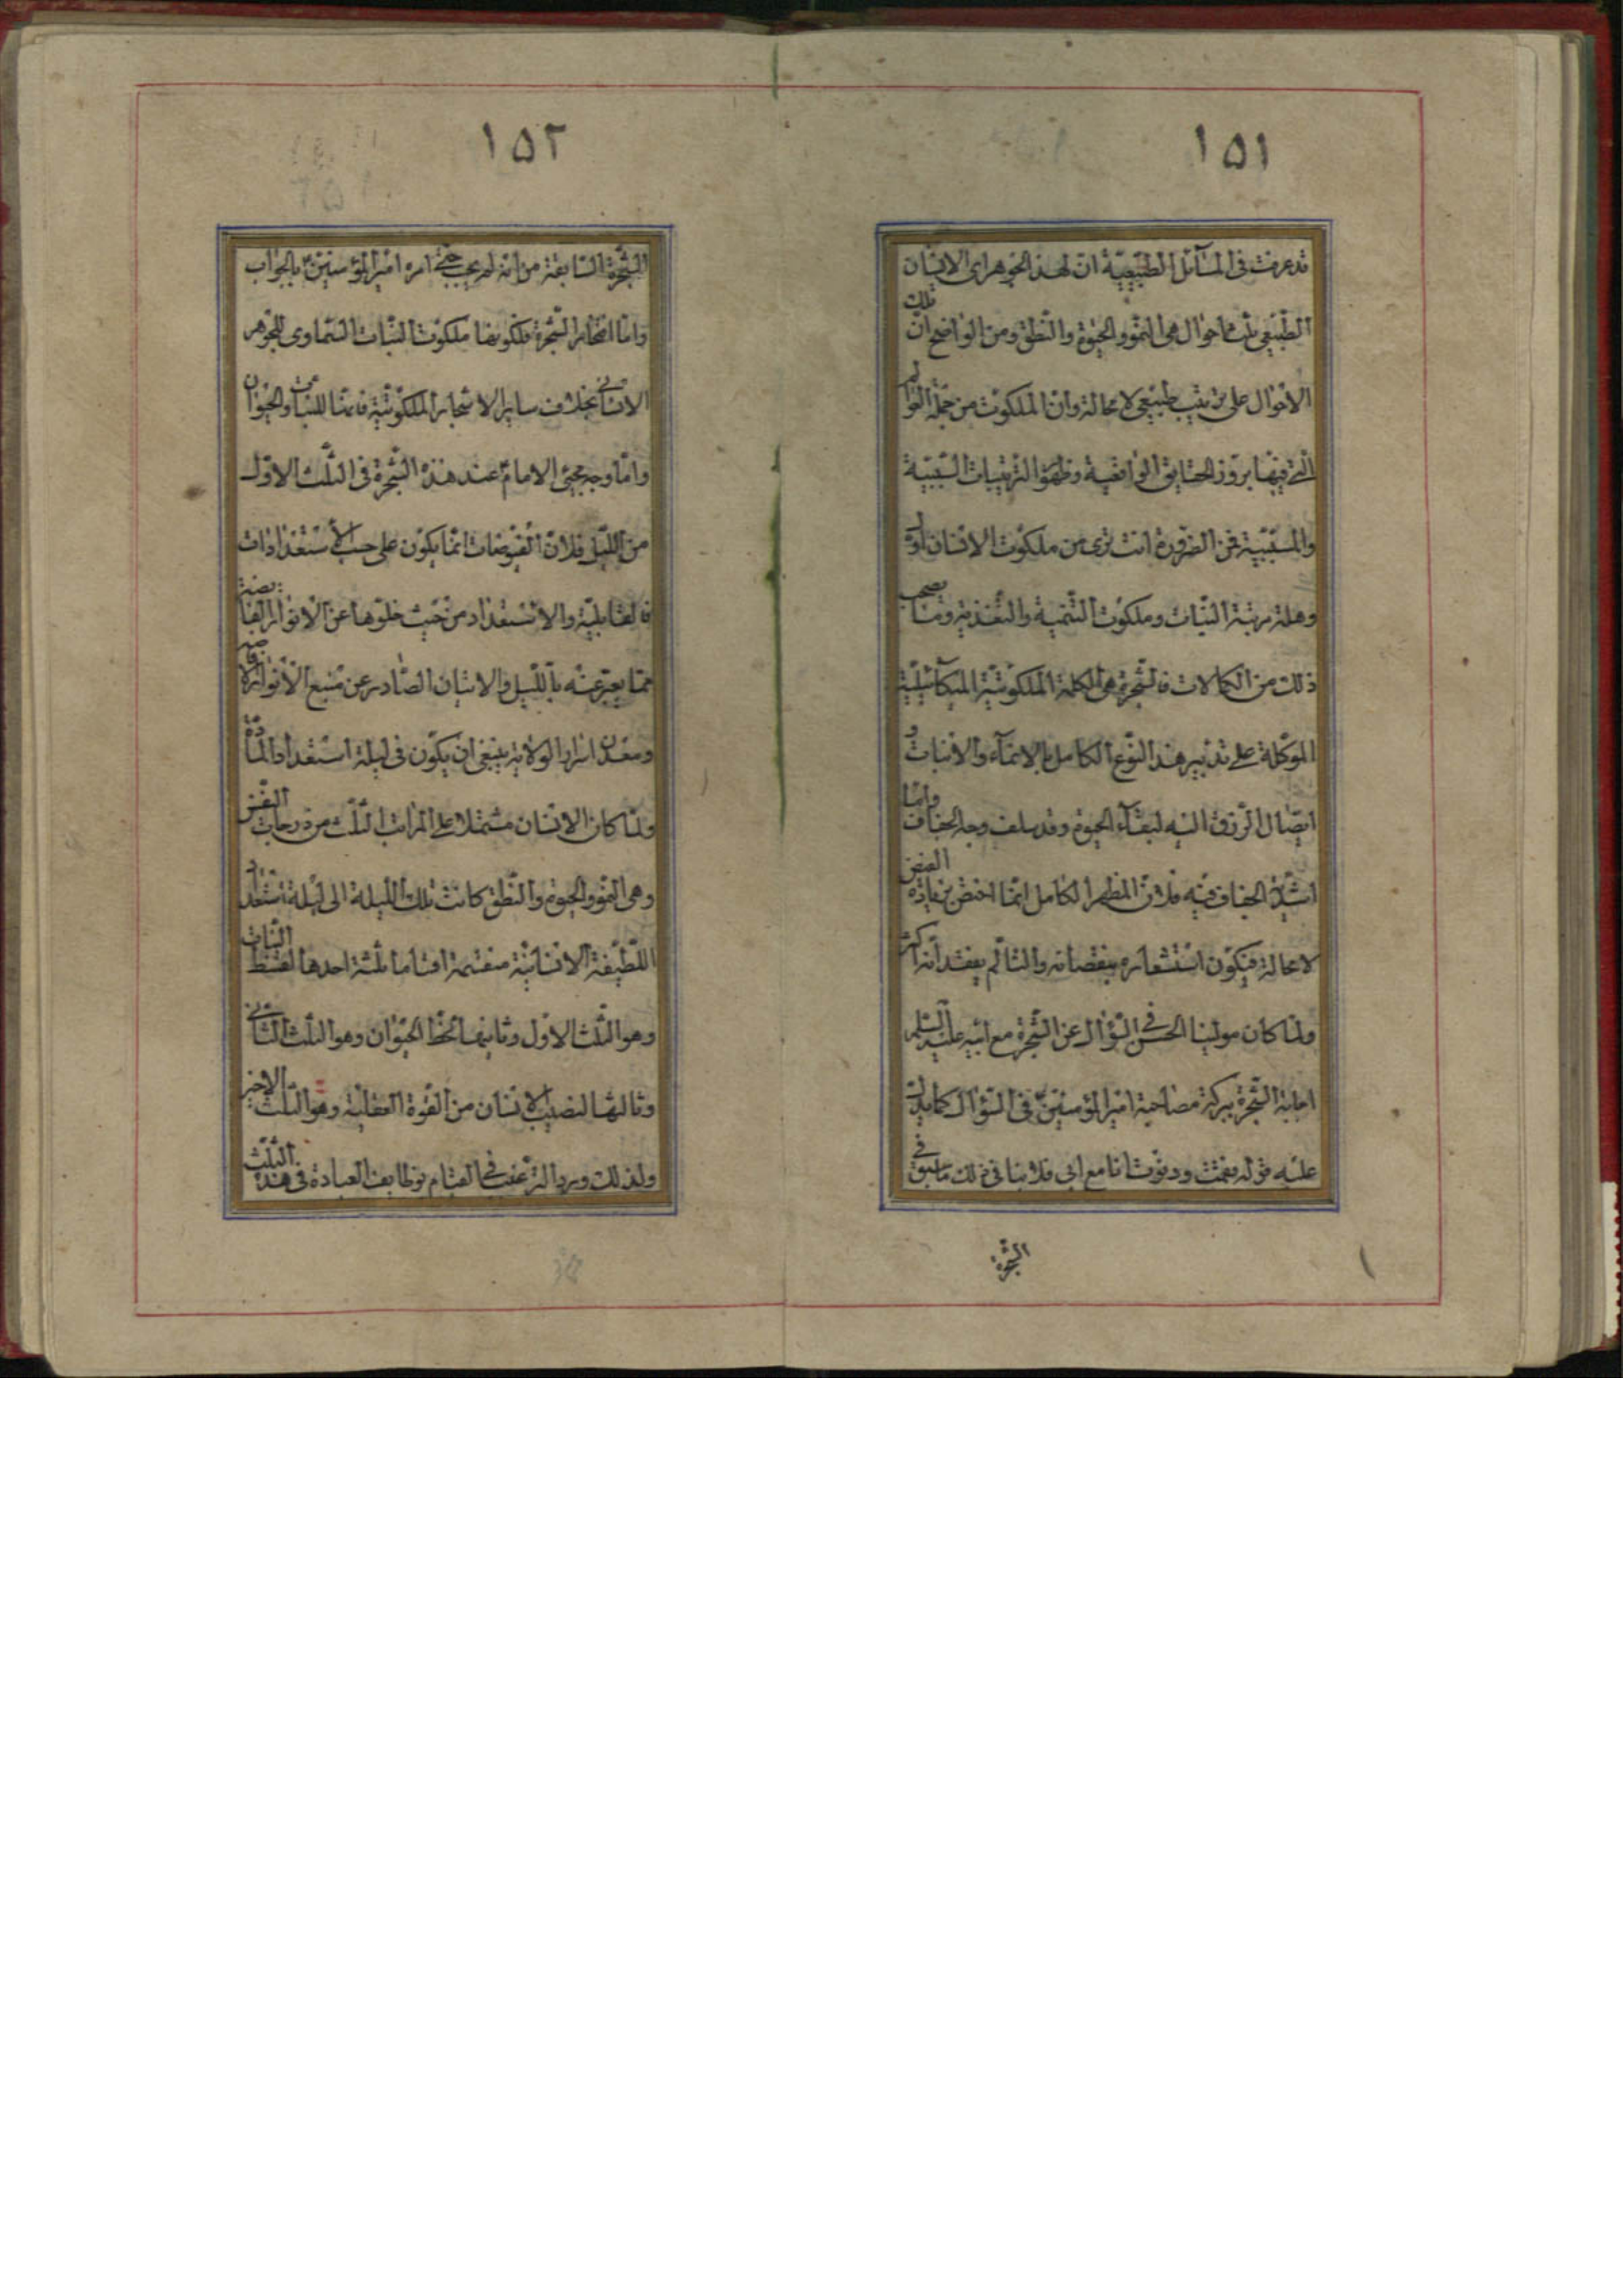 ١٥١
قد عرفت فى المسآئل الطبيعية ان لهذا الجوهر اى الانسان
الطبيعى ثلث احوال هى النمو والحيوة والنطق ومن الواضح ان تلك
الاحوال على ترتيب طبيعى لا محالة وان الملكوت من جملة العوالم
التى فيها بروز الحقايق الواقعية وظهور الترتيبات السببية
والمسببية فمن الضرورة انت ترى من ملكوت الانسان اول
وهلة مرتبة النبات وملكوت التنمية والتغذية وما يصحب
ذلك من الكمالات فالشجرة هى الكلمة الملكوتية الميكآئيلية
الموكلة على تدبير هذا النوع الكامل بالانمآء والانبات و
ايصال الرزق اليه لبقآء الحيوة وقد سلف وجه الجفاف واما
اشدية الجفاف فيه فلان المظهر الكامل انما اختص بزيادة الفيض
لا محالة فيكون استشعاره بنقصانه والتألم بفقدانه اكثر
ولما كان مولينا الحسن فى السؤال عن الشجرة مع ابيه عليه السلم
اجابة الشجرة ببركة مصاحبة امير المؤمنين فى السؤال كما يدل
عليه قوله فقمت ودنوت انا مع ابى فلا ينافى ذلك ما سبق فى
الشجرة
١٥٢
الشجرة السابقة من انه لم يجب حتى امره امير المؤمنين بالجواب
واما اخضار الشجرة فلكونها ملكوت النبات السماوى للجوهر
الانسانى بخلاف ساير الاشجار الملكوتية فانها للنبات والحيوان
واما وجه مجئ الامام عند هذه الشجرة فى الثلث الاول
من الليل فلان الفيوضات انما يكون على حسب الاستعدادات
فالقابلية والاستعداد من حيث خلوها عن الانوار الفايضة
مما يعبر عنه بالليل والاتيان الصادر عن منبع الانوار
ومعدن اسرار الولاية ينبغى ان يكون فى ليلة استعداد المادة
ولما كان الانسان مشتملا على المراتب الثلث من درجات النفس
وهى النمو والحيوة والنطق كانت تلك الليلة اى ليلة استعداد
اللطيفة الانسانية منقسمة اقساما ثلثة احدها لقسط النبات
وهو الثلث الاول وثانيها لحظ الحيوان وهو الثلث الثانى
وثالثها لنصيب الانسان من القوة العقلية وهو الثلث الاخير
ولذلك ورد الترغيب فى القيام بوظايف العبادة فى هذا الثلث